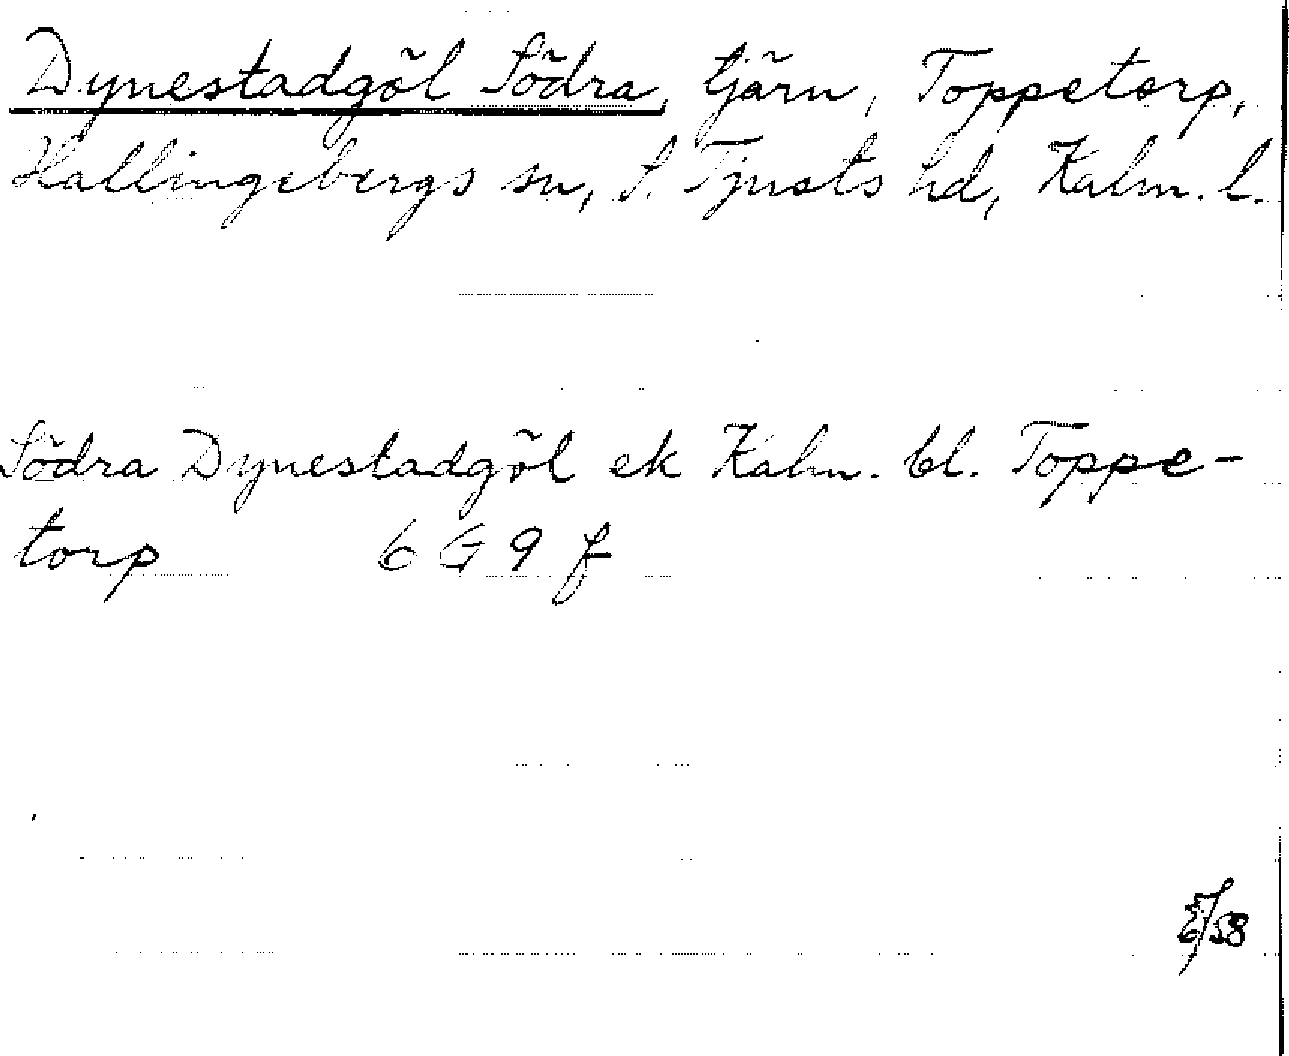 Dynestadgöl Södra, tjärn, Toppetorp,
Hallingebergs sn, S. Tjusts hd, Kalm. l.
Södra Dynestadgöl ek Kalm. bl. Toppe-
torp 6 G 9 f